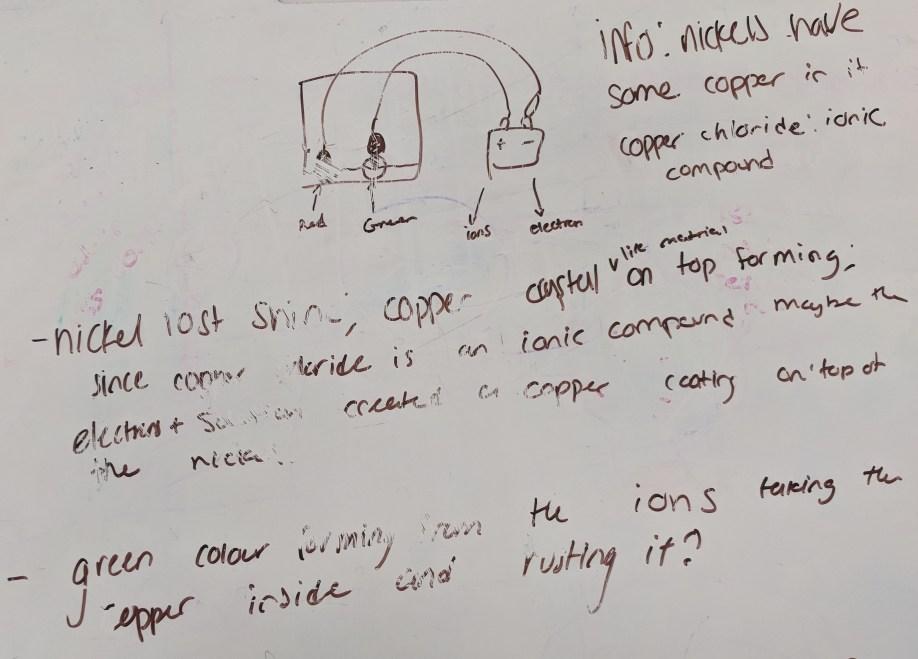 info: nickels have
some copper in it
copper chloride: ionic
compound
+ -
Red Green ions electron
- nickel lost shine, copper crystal like material on top forming;
since copper chloride is an ionic compound maybe the
electrons + created a copper coating on top of
the nickel
- green colour forming from the ions taking the
copper inside and rusting it?